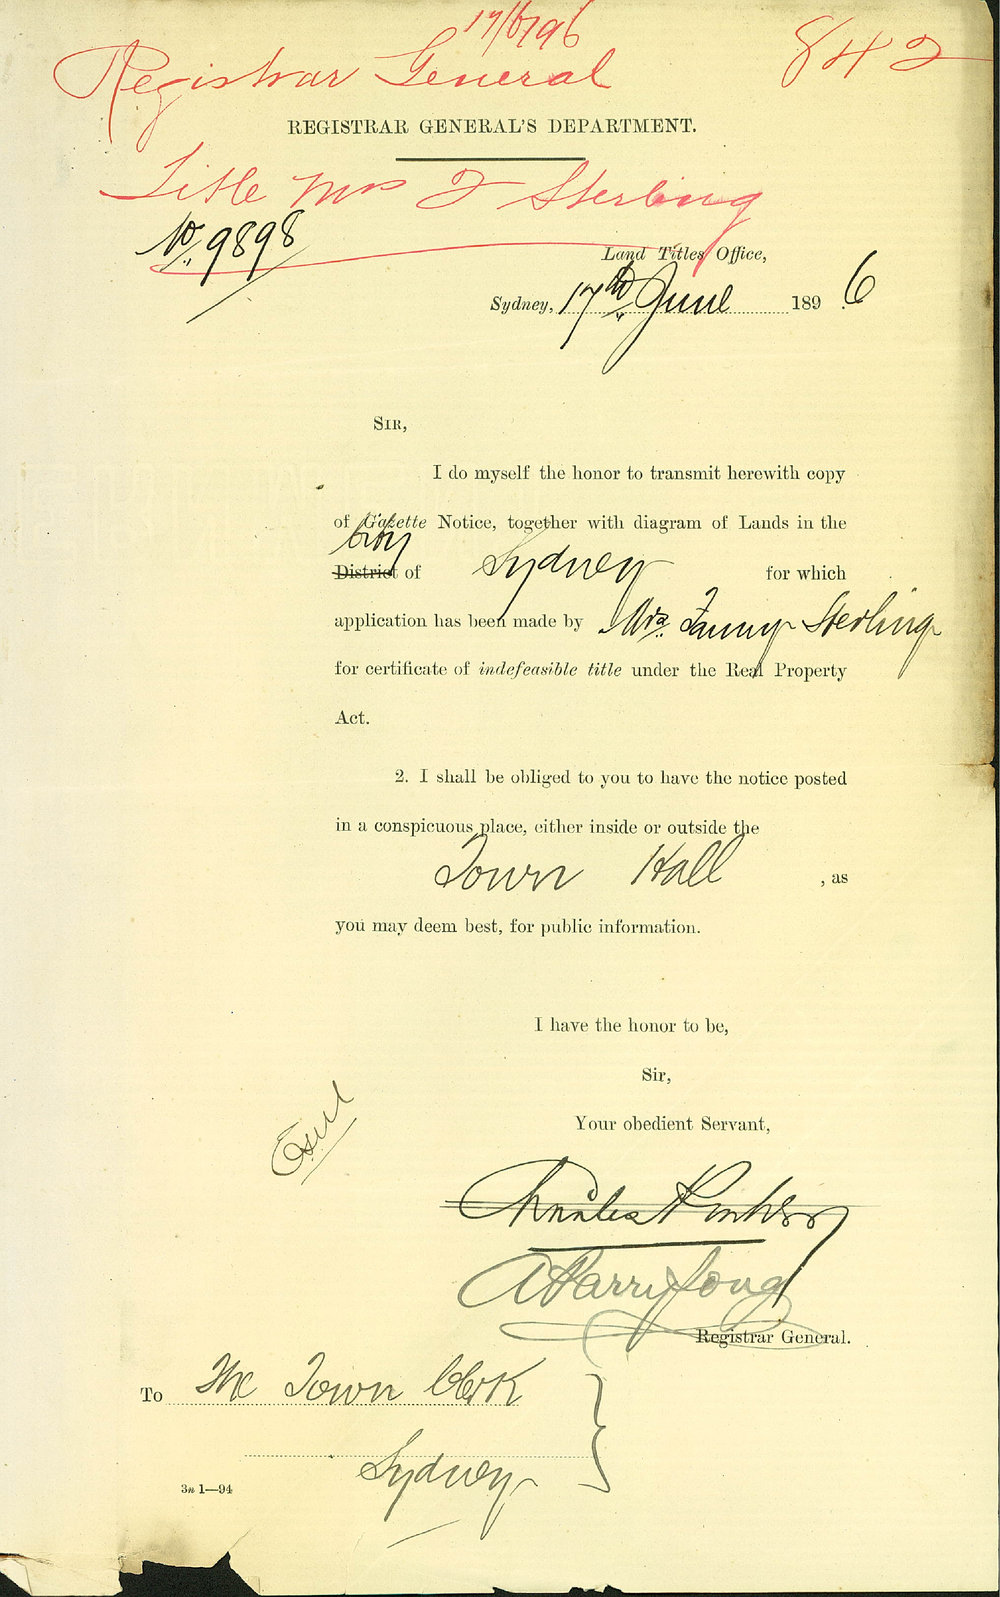 17/6/96
Registrar General 842
REGISTRAR GENERAL'S DEPARTMENT.
Title Mrs F Sterling
No. 9898
Land Titles Office,
Sydney, 17th June 1896
SIR,
I do myself the honor to transmit herewith copy
of Gazette Notice, together with diagram of Lands in the
City
District of Sydney for which
application has been made by Mrs. Fanny Sterling
for certificate of indefeasible title under the Real Property
Act.
2. I shall be obliged to you to have the notice posted
in a conspicuous place, either inside or outside the
Town Hall , as
you may deem best, for public information.
I have the honor to be,
Sir,
Your obedient Servant,
Charles
Registrar General.
To The Town Clerk
Sydney
3n 1—94